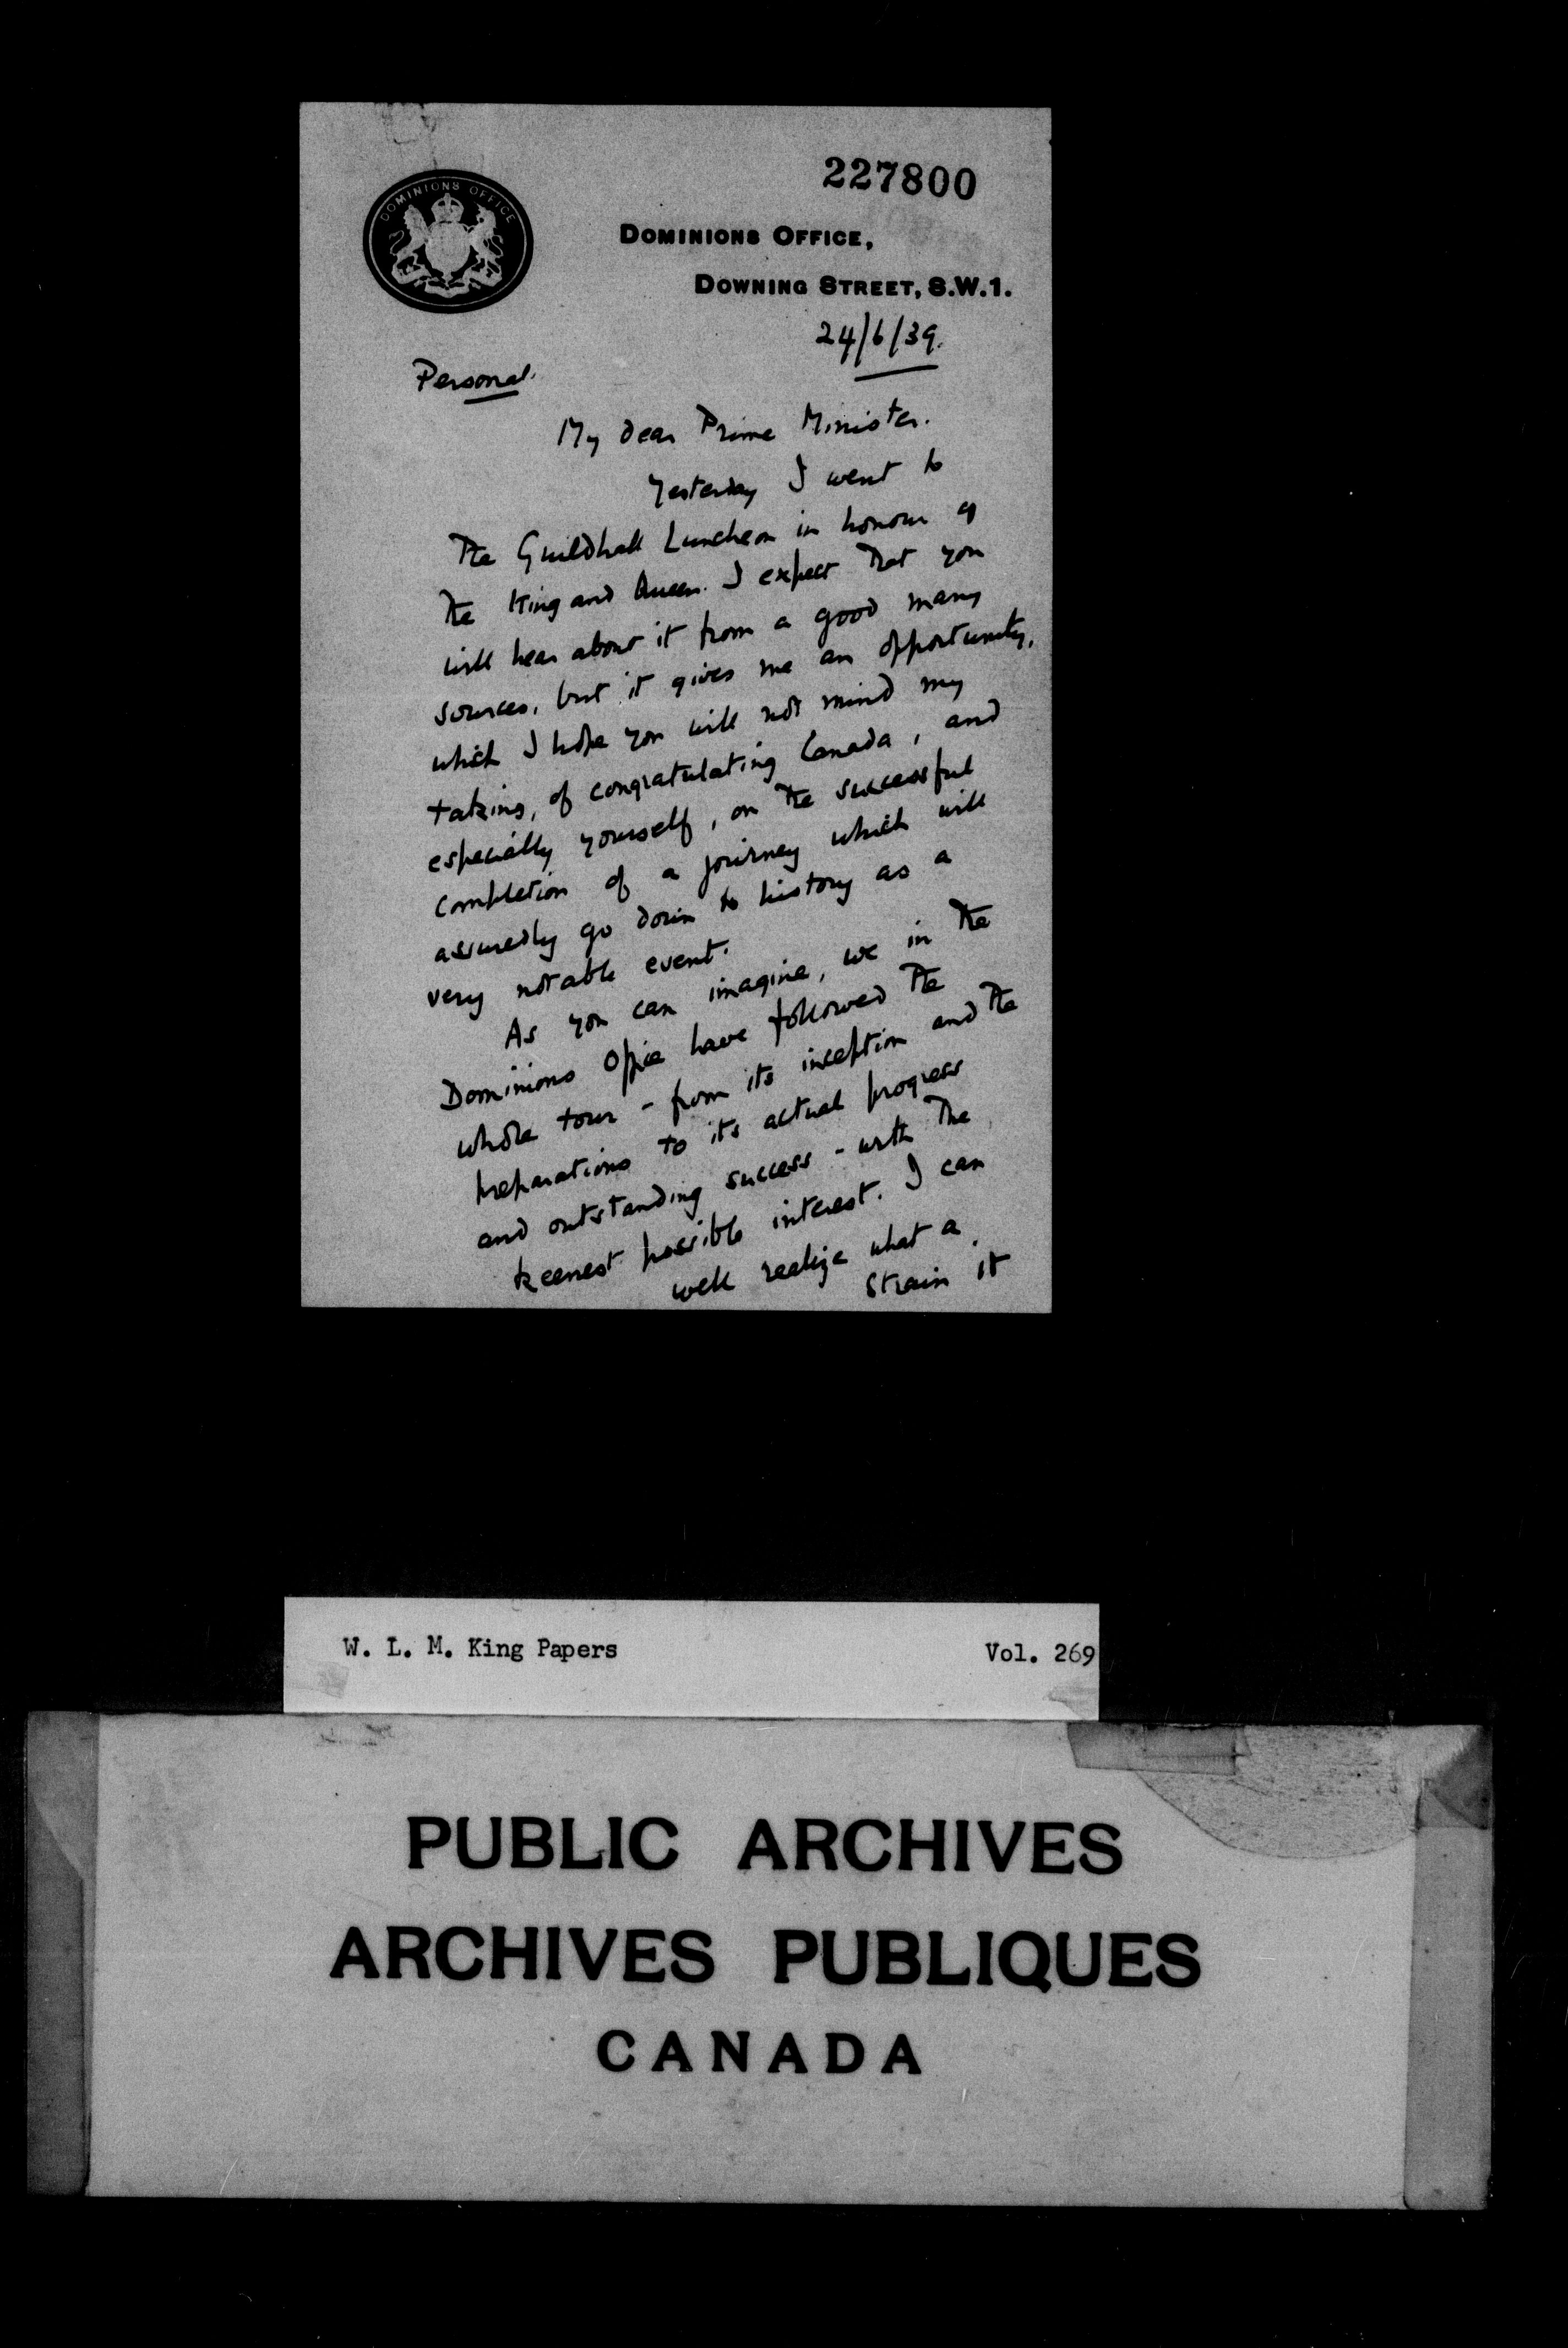 227800
DOMINIONS OFFICE
DOMINIONS OFFICE,
DOWNING STREET, S.W.1.
24/6/39.
Personal.
My dear Prime Minister.
Yesterday I went to
the Guildhall Luncheon in honour of
the King and Queen. I expect that you
will hear about it from a good many
sources, but it gives me an opportunity,
which I hope you will not mind my
taking, of congratulating Canada, and
especially yourself, on the successful
completion of a journey which will
assuredly go down to history as a
very notable event.
As you can imagine, we in the
Dominions Office have followed the
whole tour - from its inception and the
preparations to its actual progress
and outstanding success - with the
keenest possible interest. I can
well realize what a
strain it
W. L. M. King Papers Vol. 269
PUBLIC ARCHIVES
ARCHIVES PUBLIQUES
CANADA